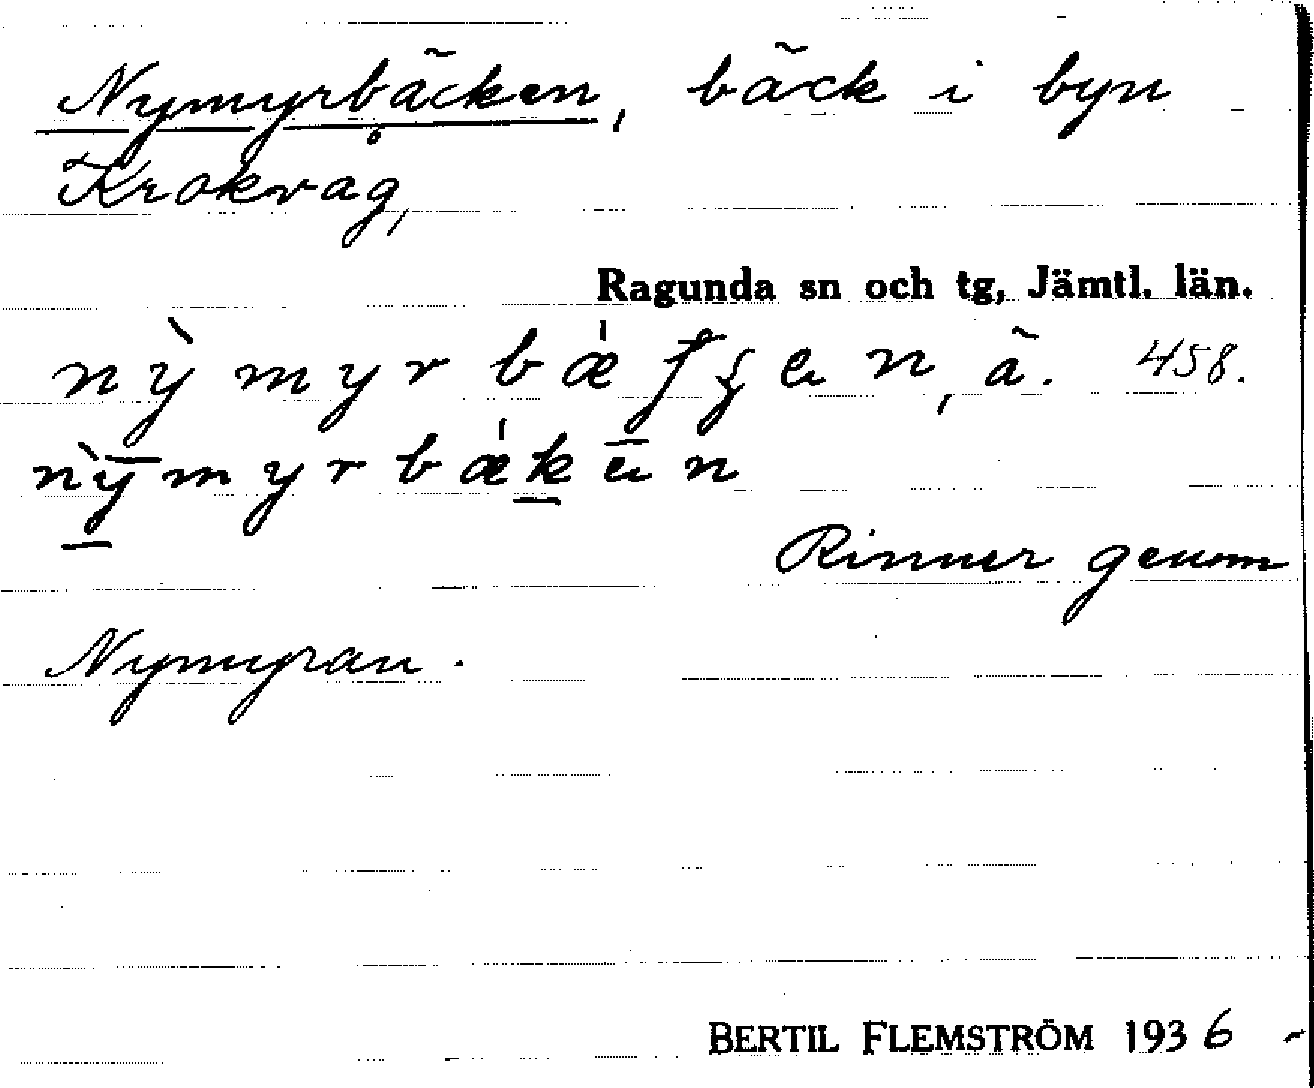 Nymyrbäcken, bäck i byn
Krokvåg,
Ragunda sn och tg, Jämtl. län.
ä. 458.
Rinner genom
Nymyran.
BERTIL FLEMSTRÖM 1936